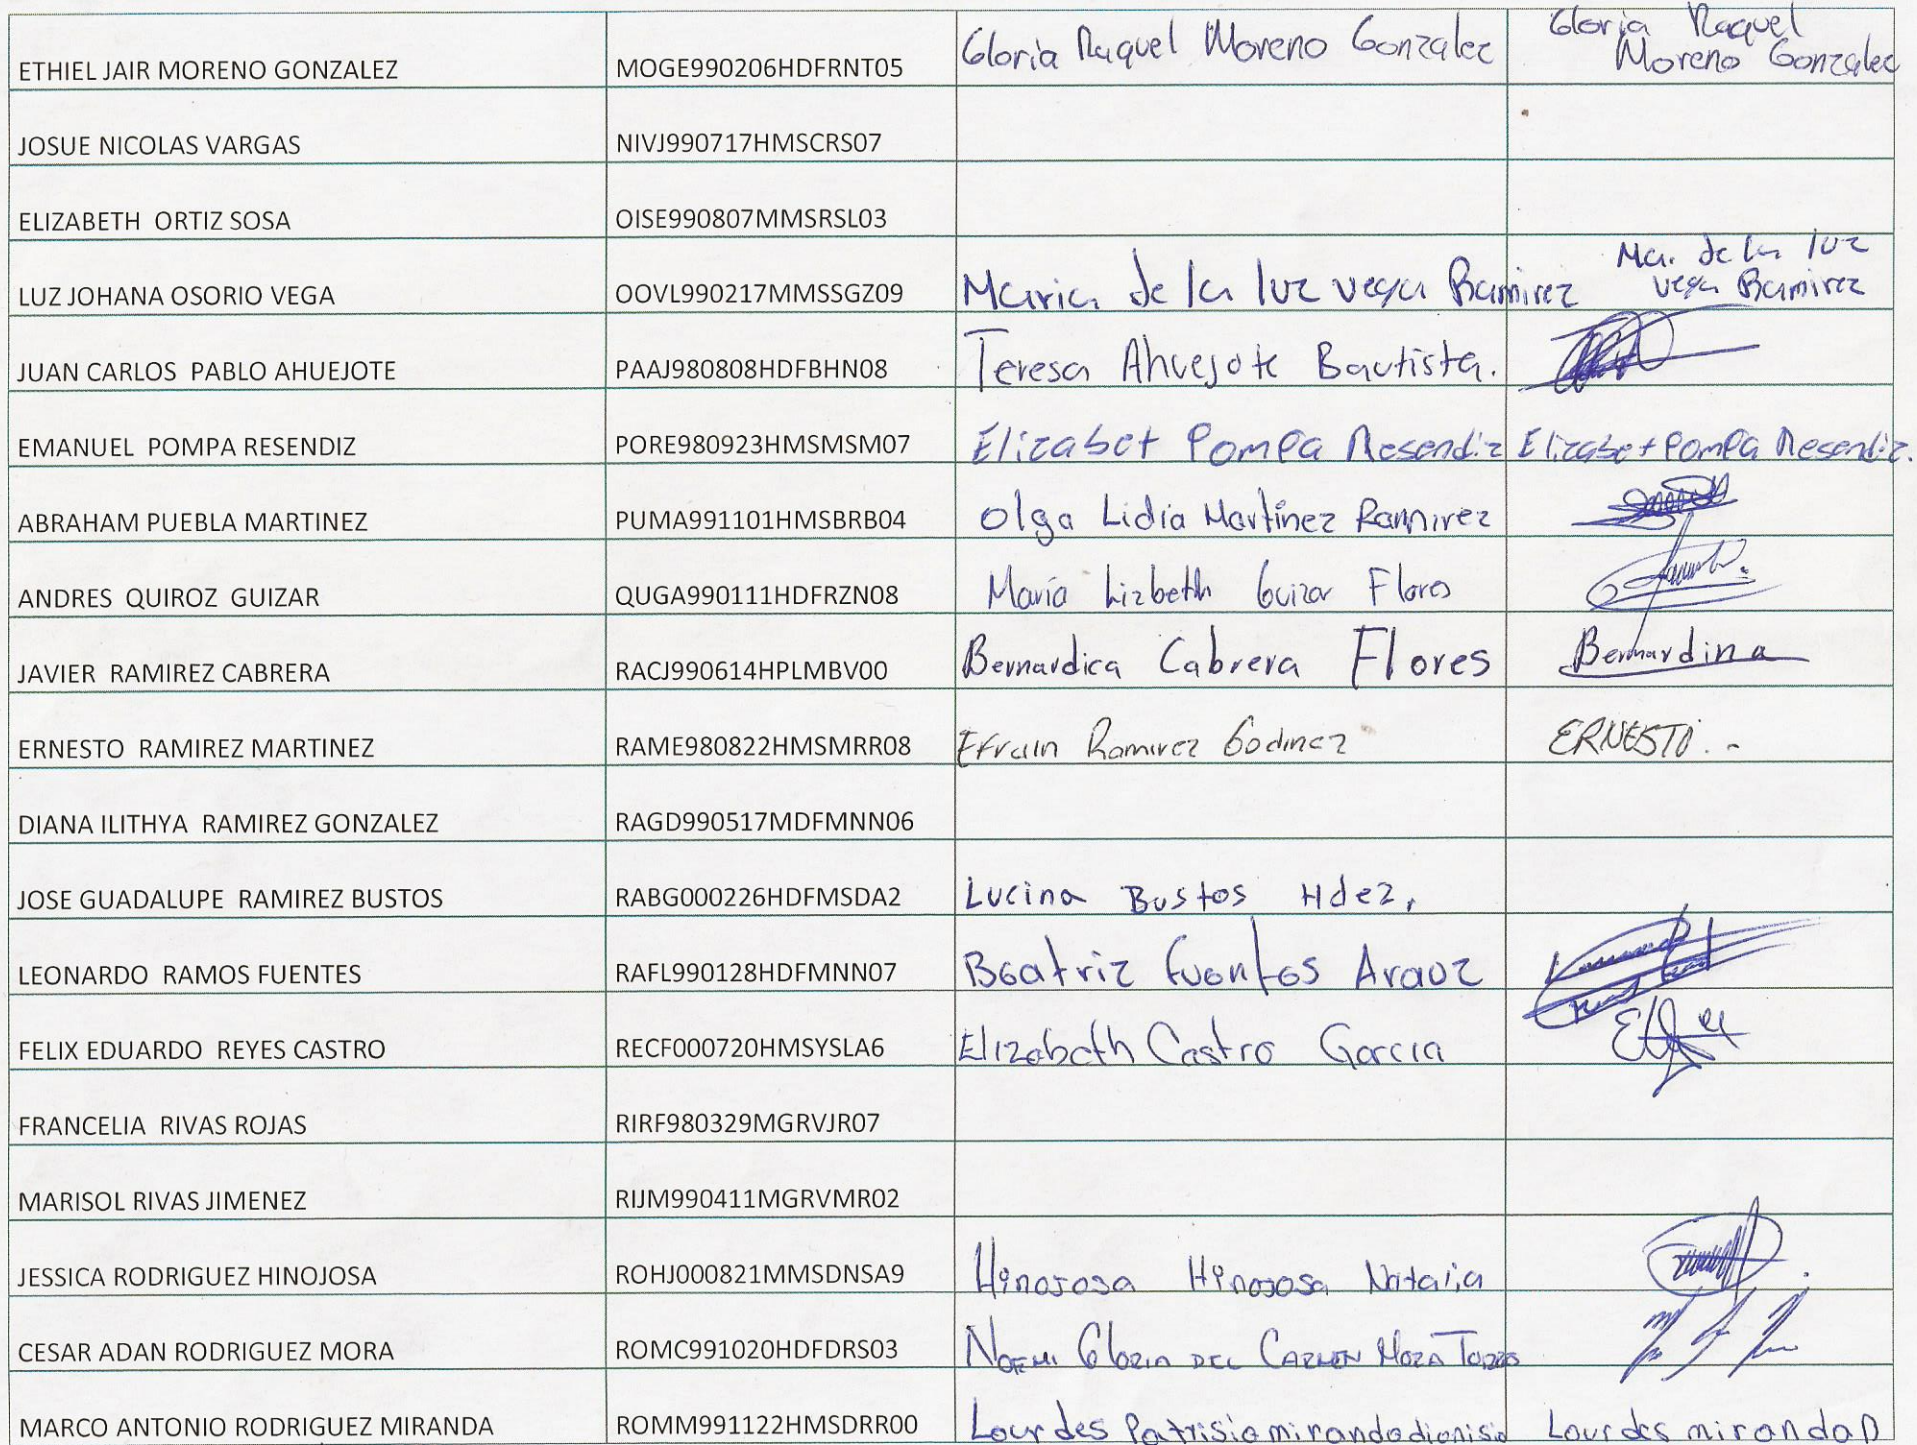 ETHIEL JAIR MORENO GONZALEZ MOGE990206HDFRNT05 Gloria Raquel Moreno Gonzalez Gloria Raquel
Moreno Gonzalez
JOSUE NICOLAS VARGAS NIVJ990717HMSCRS07
ELIZABETH ORTIZ SOSA OISE990807MMSRSL03
LUZ JOHANA OSORIO VEGA OOVL990217MMSSGZ09 Maria de la luz vega Ramirez Ma. de la luz
vega Ramirez
JUAN CARLOS PABLO AHUEJOTE PAAJ980808HDFBHN08 Teresa Ahuejote Bautista.
EMANUEL POMPA RESENDIZ PORE980923HMSMSM07 Elizabet Pompa Resendiz Elizabet Pompa Resendiz.
ABRAHAM PUEBLA MARTINEZ PUMA991101HMSBRB04 Olga Lidia Martínez Ramirez
ANDRES QUIROZ GUIZAR QUGA990111HDFRZN08 María Lizbeth Guizar Flores
JAVIER RAMIREZ CABRERA RACJ990614HPLMBV00 Bernardica Cabrera Flores Bernardina
ERNESTO RAMIREZ MARTINEZ RAME980822HMSMRR08 Efrain Ramirez Godinez ERNESTO.-
DIANA ILITHYA RAMIREZ GONZALEZ RAGD990517MDFMNN06
JOSE GUADALUPE RAMIREZ BUSTOS RABG000226HDFMSDA2 Lucina Bustos Hdez.
LEONARDO RAMOS FUENTES RAFL990128HDFMNN07 Beatriz Fuentes Arauz
FELIX EDUARDO REYES CASTRO RECF000720HMSYSLA6 Elizabeth Castro Garcia
FRANCELIA RIVAS ROJAS RIRF980329MGRVJR07
MARISOL RIVAS JIMENEZ RIJM990411MGRVMR02
JESSICA RODRIGUEZ HINOJOSA ROHJ000821MMSDNSA9 Hinojosa Hinojosa Natalia
CESAR ADAN RODRIGUEZ MORA ROMC991020HDFDRS03 NOEMI GLORIA DEL CARMEN MORA TORRES
MARCO ANTONIO RODRIGUEZ MIRANDA ROMM991122HMSDRR00 Lourdes Patrisia miranda dionisio Lourdes miranda D